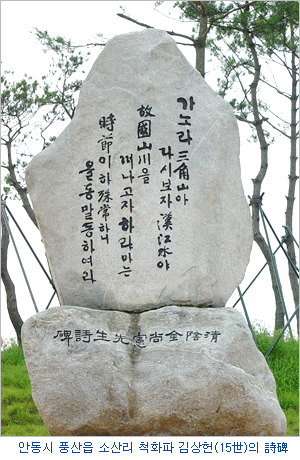 가노라 三角山아
다시보자 漢江水야
故國山川을
떠나고자 하랴마는
時節이 하 殊常하니
올동말동하여라
淸陰金尙憲先生詩碑
안동시 풍산읍 소산리 척화파 김상헌(15世)의 詩碑